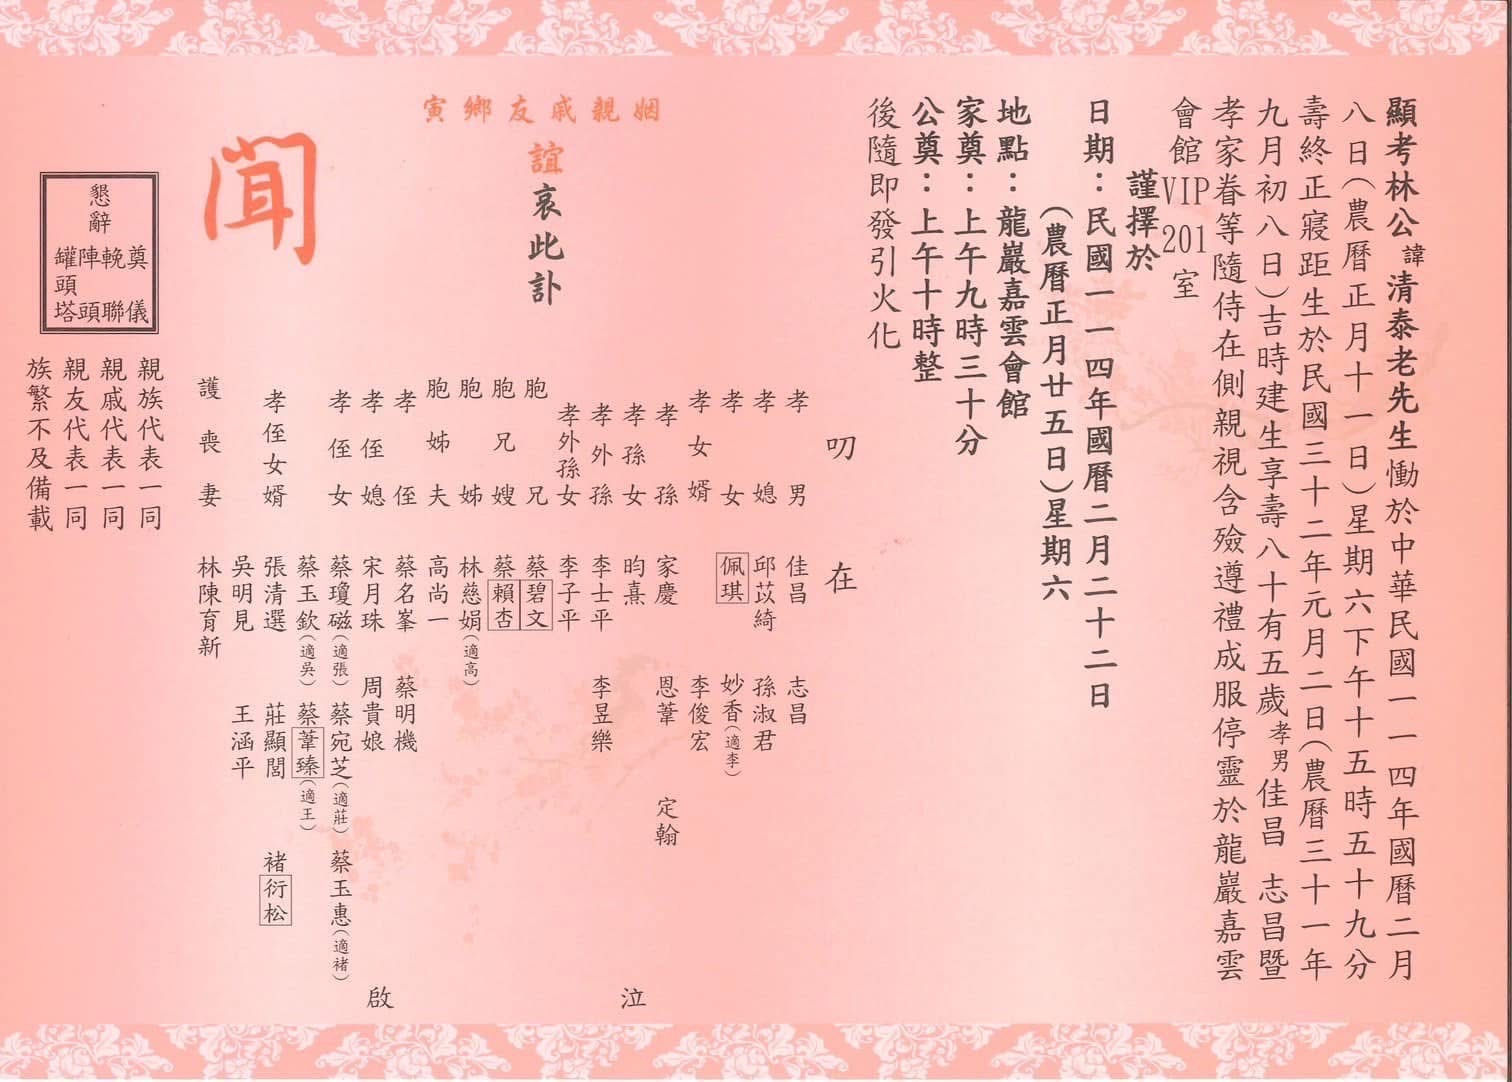 顯考林公諱清泰老先生慟於中華民國一一四年國曆二月
八日(農曆正月十一日)星期六下午十五時五十九分
壽終正寢距生於民國三十二年元月二日(農曆三十一年
九月初八日)吉時建生享壽八十有五歲孝男佳昌 志昌暨
孝家眷等隨侍在側親視含殮遵禮成服停靈於龍巖嘉雲
會館VIP 201室
謹擇於
日期：民國一一四年國曆二月二十二日
(農曆正月廿五日)星期六
地點：龍巖嘉雲會館
家奠：上午九時三十分
公奠：上午十時整
後隨即發引火化
叨在
孝男 佳昌 志昌
孝媳 邱苡綺 孫淑君
孝女 佩琪 妙香(適李)
孝女婿 李俊宏
孝孫 家慶 恩葦 定翰
孝孫女 昀熹
孝外孫 李士平 李昱樂
孝外孫女 李子平
胞兄 蔡碧文
胞兄嫂 蔡賴杏
胞姊 林慈娟(適高)
胞姊夫 高尚一
孝侄 蔡名峯 蔡明機
孝侄媳 宋月珠 周貴娘
孝侄女 蔡瓊磁(適張) 蔡宛芝(適莊) 蔡玉惠(適褚)
蔡玉欽(適吳) 蔡葦臻(適王)
孝侄女婿 張清選 莊顯閭 褚衍松
吳明見 王涵平
護喪妻 林陳育新
泣
啟
姻親戚友鄉寅
誼哀此訃
聞
懇辭
奠儀
輓聯
陣頭
罐頭塔
親族代表一同
親戚代表一同
親友代表一同
族繁不及備載